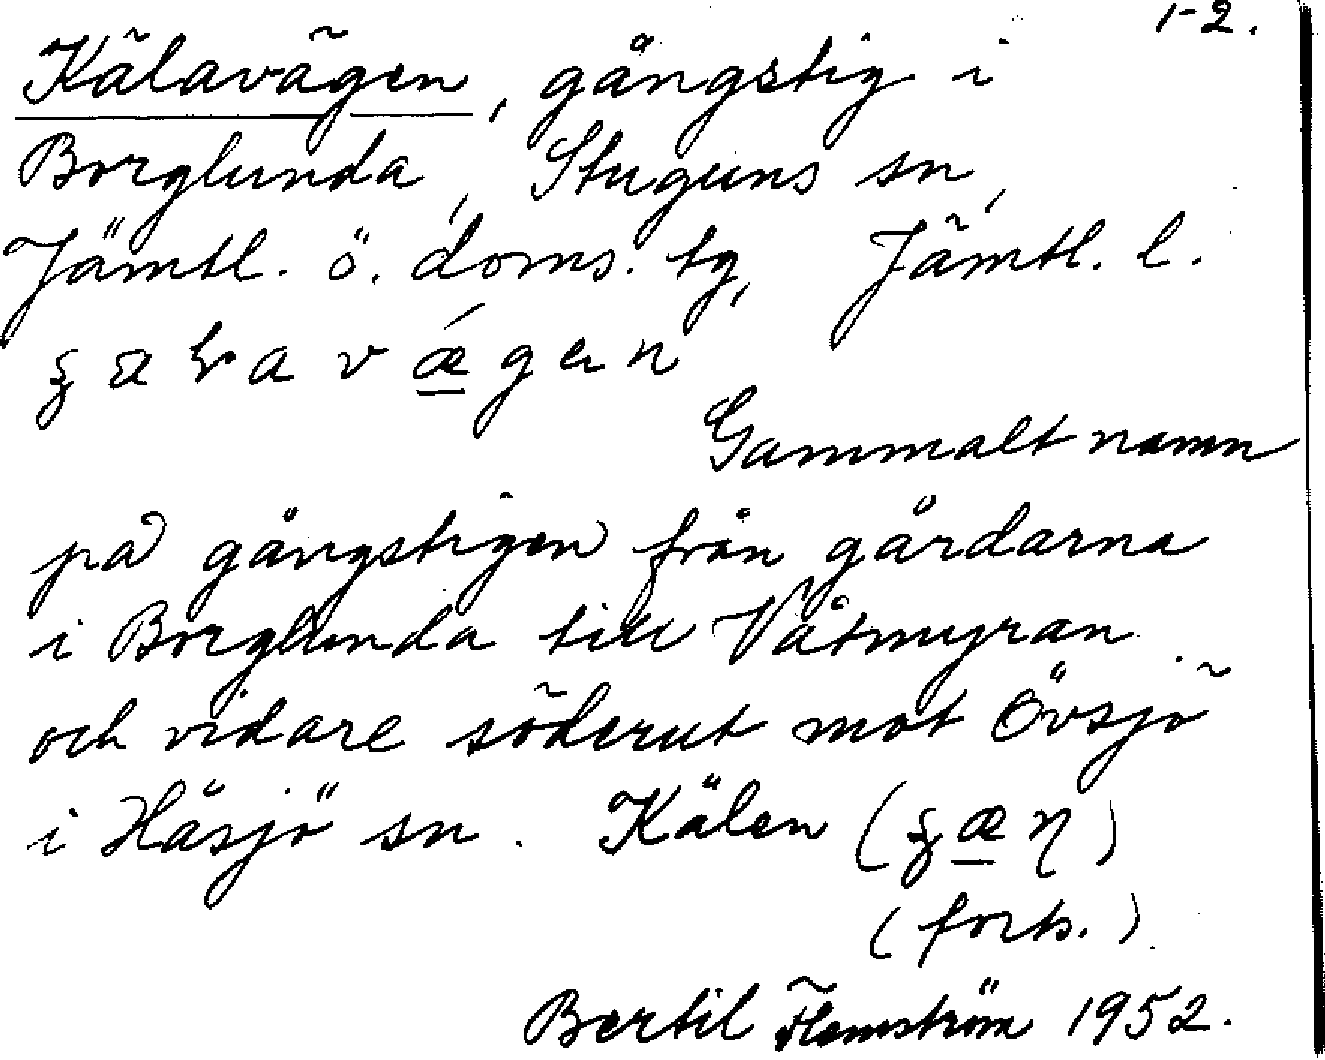 1-2.
Kälavägen, gångstig i
Borglunda, Stuguns sn,
Jämtl. ö. doms. tg, Jämtl. l.
Gammalt namn
på gångstigen från gårdarna
i Borglunda till Våtmyran
och vidare söderut mot Övsjö
i Häsjö sn. Kälen (
(forts.)
Bertil Flemström 1952.